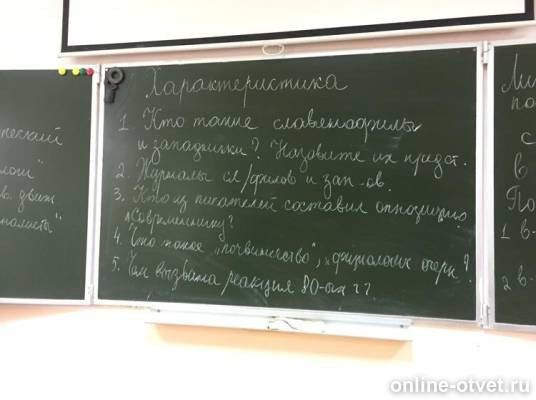 Характеристика
1. Кто такие славянофилы
и западники? Назовите их предст.
2. Журналы сл/филов и зап-ов.
3. Кто из писателей составил оппозицию
"Современнику?
4. Что такое "почвиничество", "физиологич очерк?
5. Чем вызвана реакция 80-ых гг
ческий
лош"
ов. движ
алисты"
Ли
по
с
в
По
1 в-
2 в-
online-otvet.ru